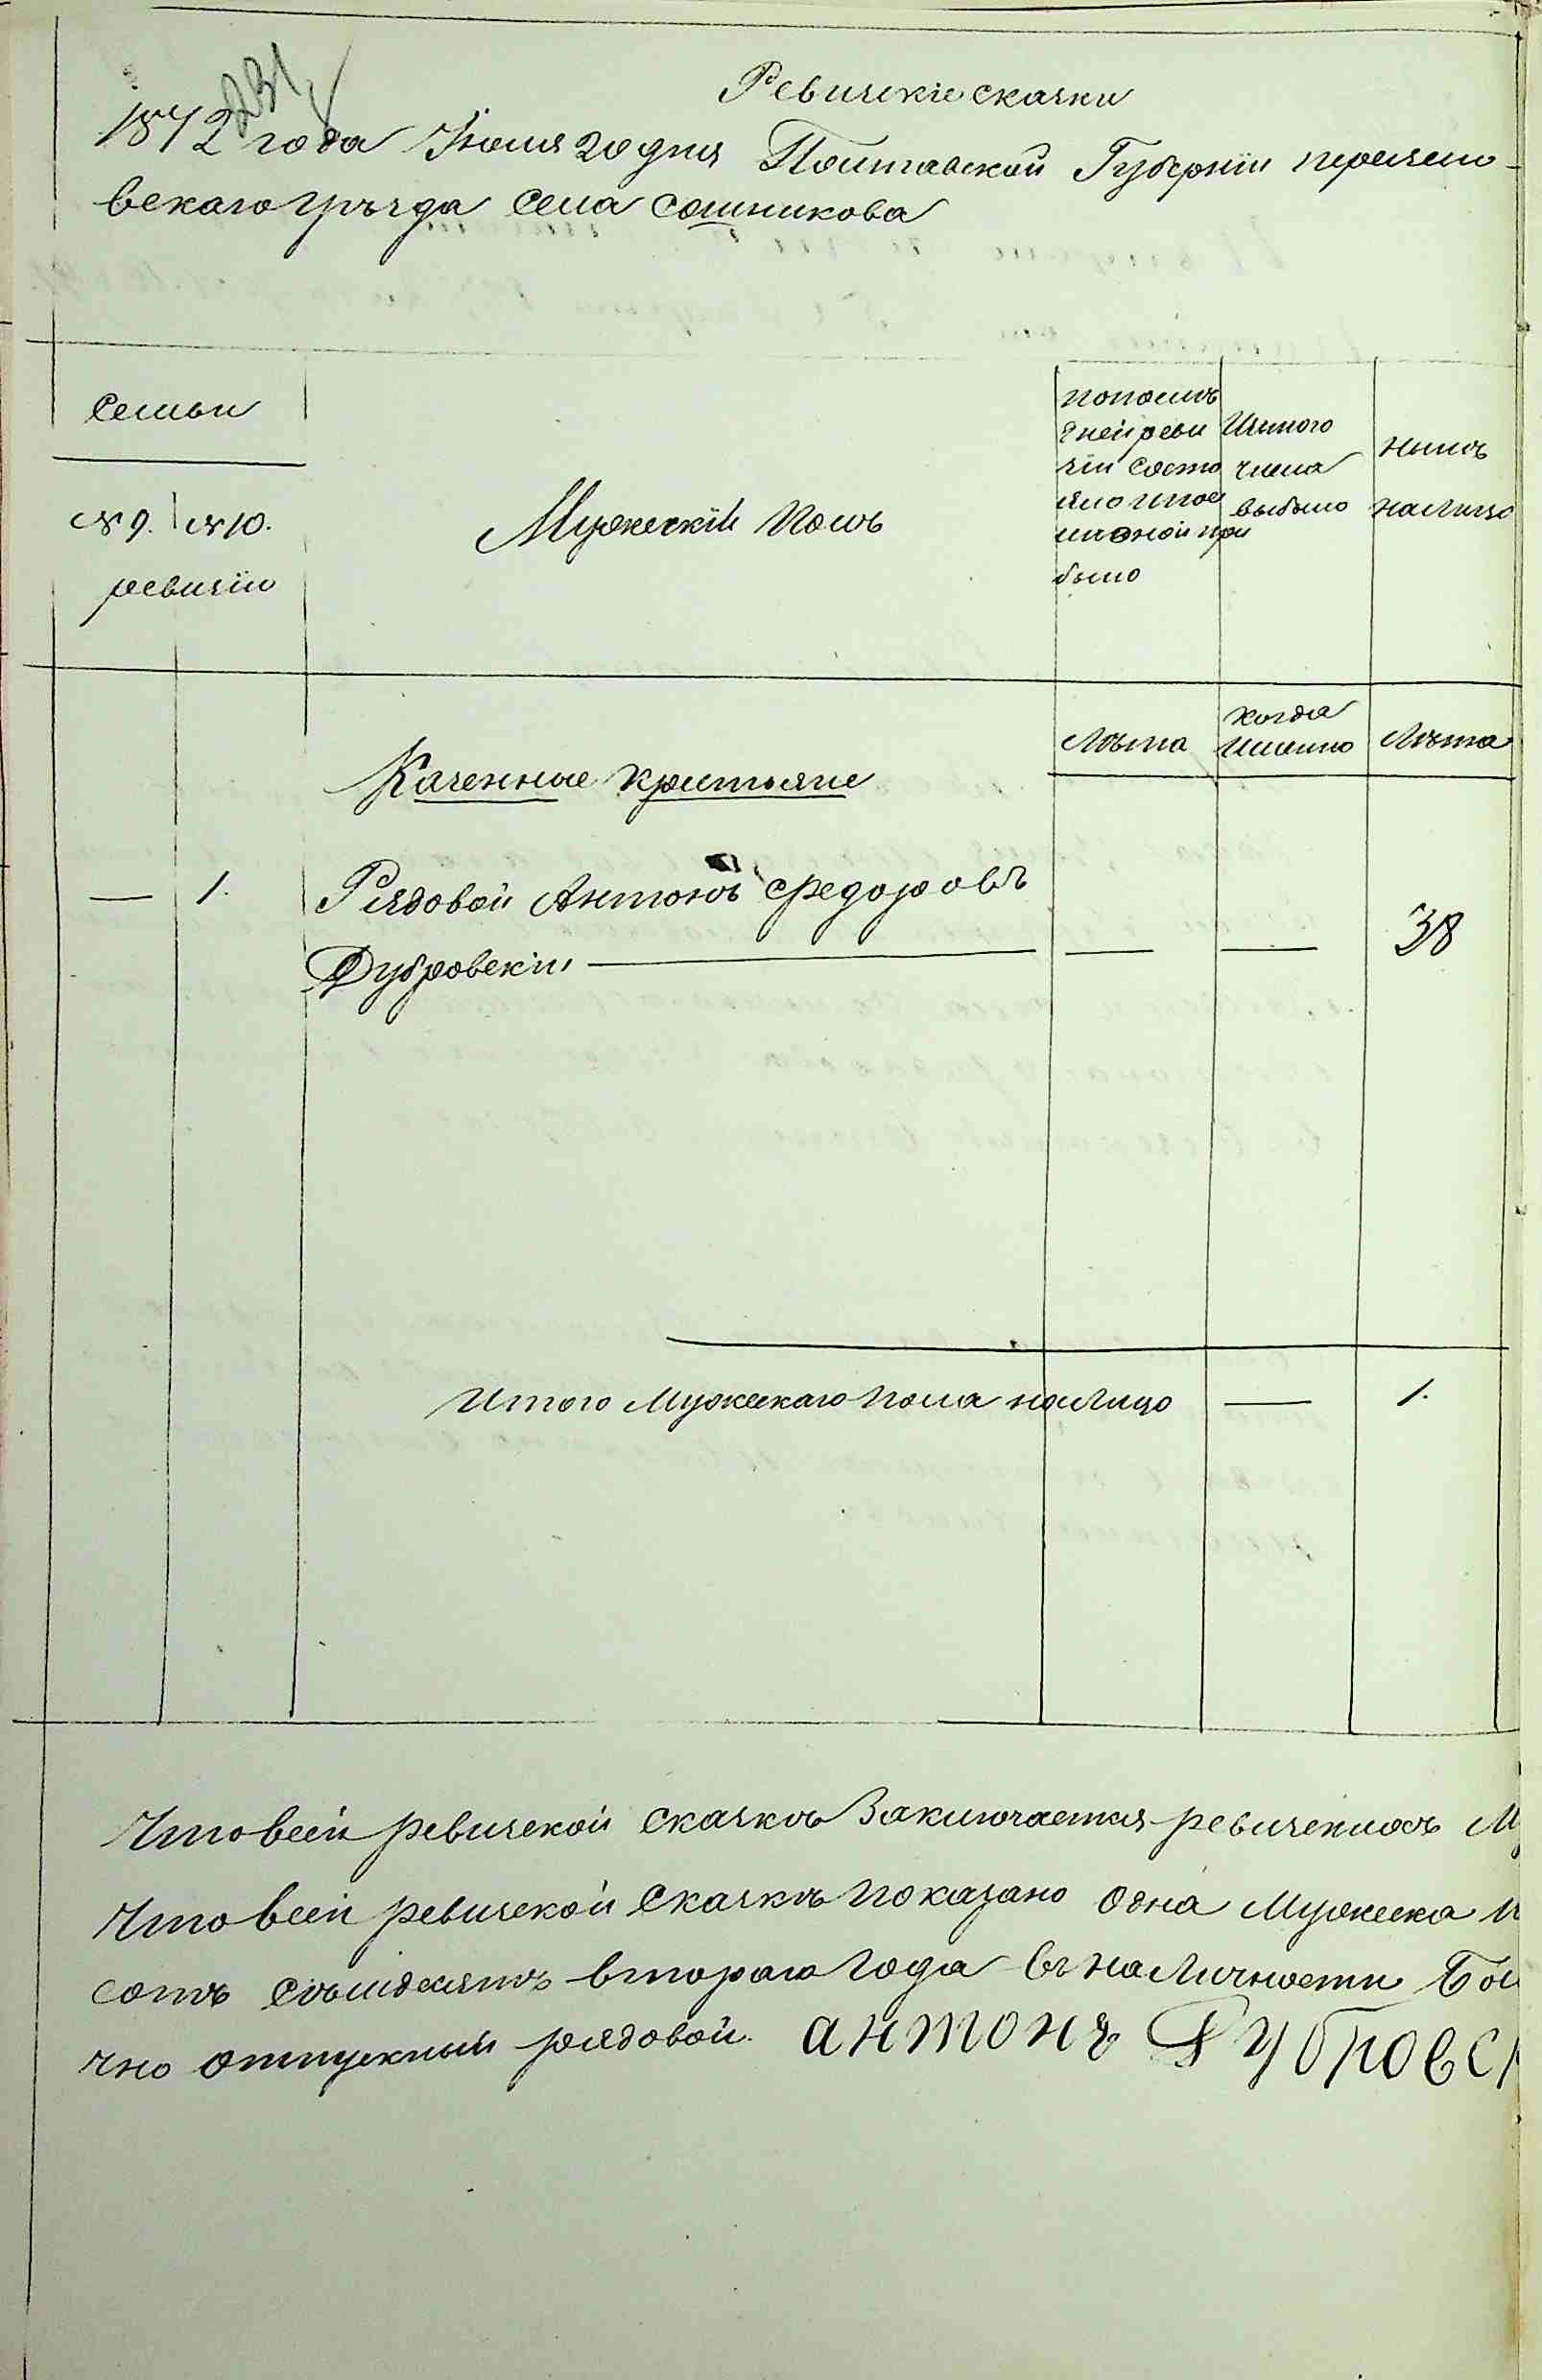 231
Ревизскіе сказки
1872 года Іюля 20 дня Полтавской Губерніи переясло-
вскаго уѣзда села сошникова
Семьи
№ 9. № 10.
ревизіи
Мужескій полъ
по послѣ
дней реви
зіи состо
яло и пос
лѣ оной при
было
Изъ того
числа
выбыло
нынѣ
на лицо
Лѣта
когда
именно
Лѣта
Казенные крестьяне
— 1. Рядовой Антонъ Федоровъ
Дубровскій — — — 38
Итого Мужескаго пола на лицо — 1.
Что в сей ревизской сказкѣ Заключается ревизскихъ М
Что в сей ревизской Сказкѣ показано одна Мужеска п
сотъ семьдесятъ втораго года въ наличности
чно отпускный рядовой. антонъ Дубровск